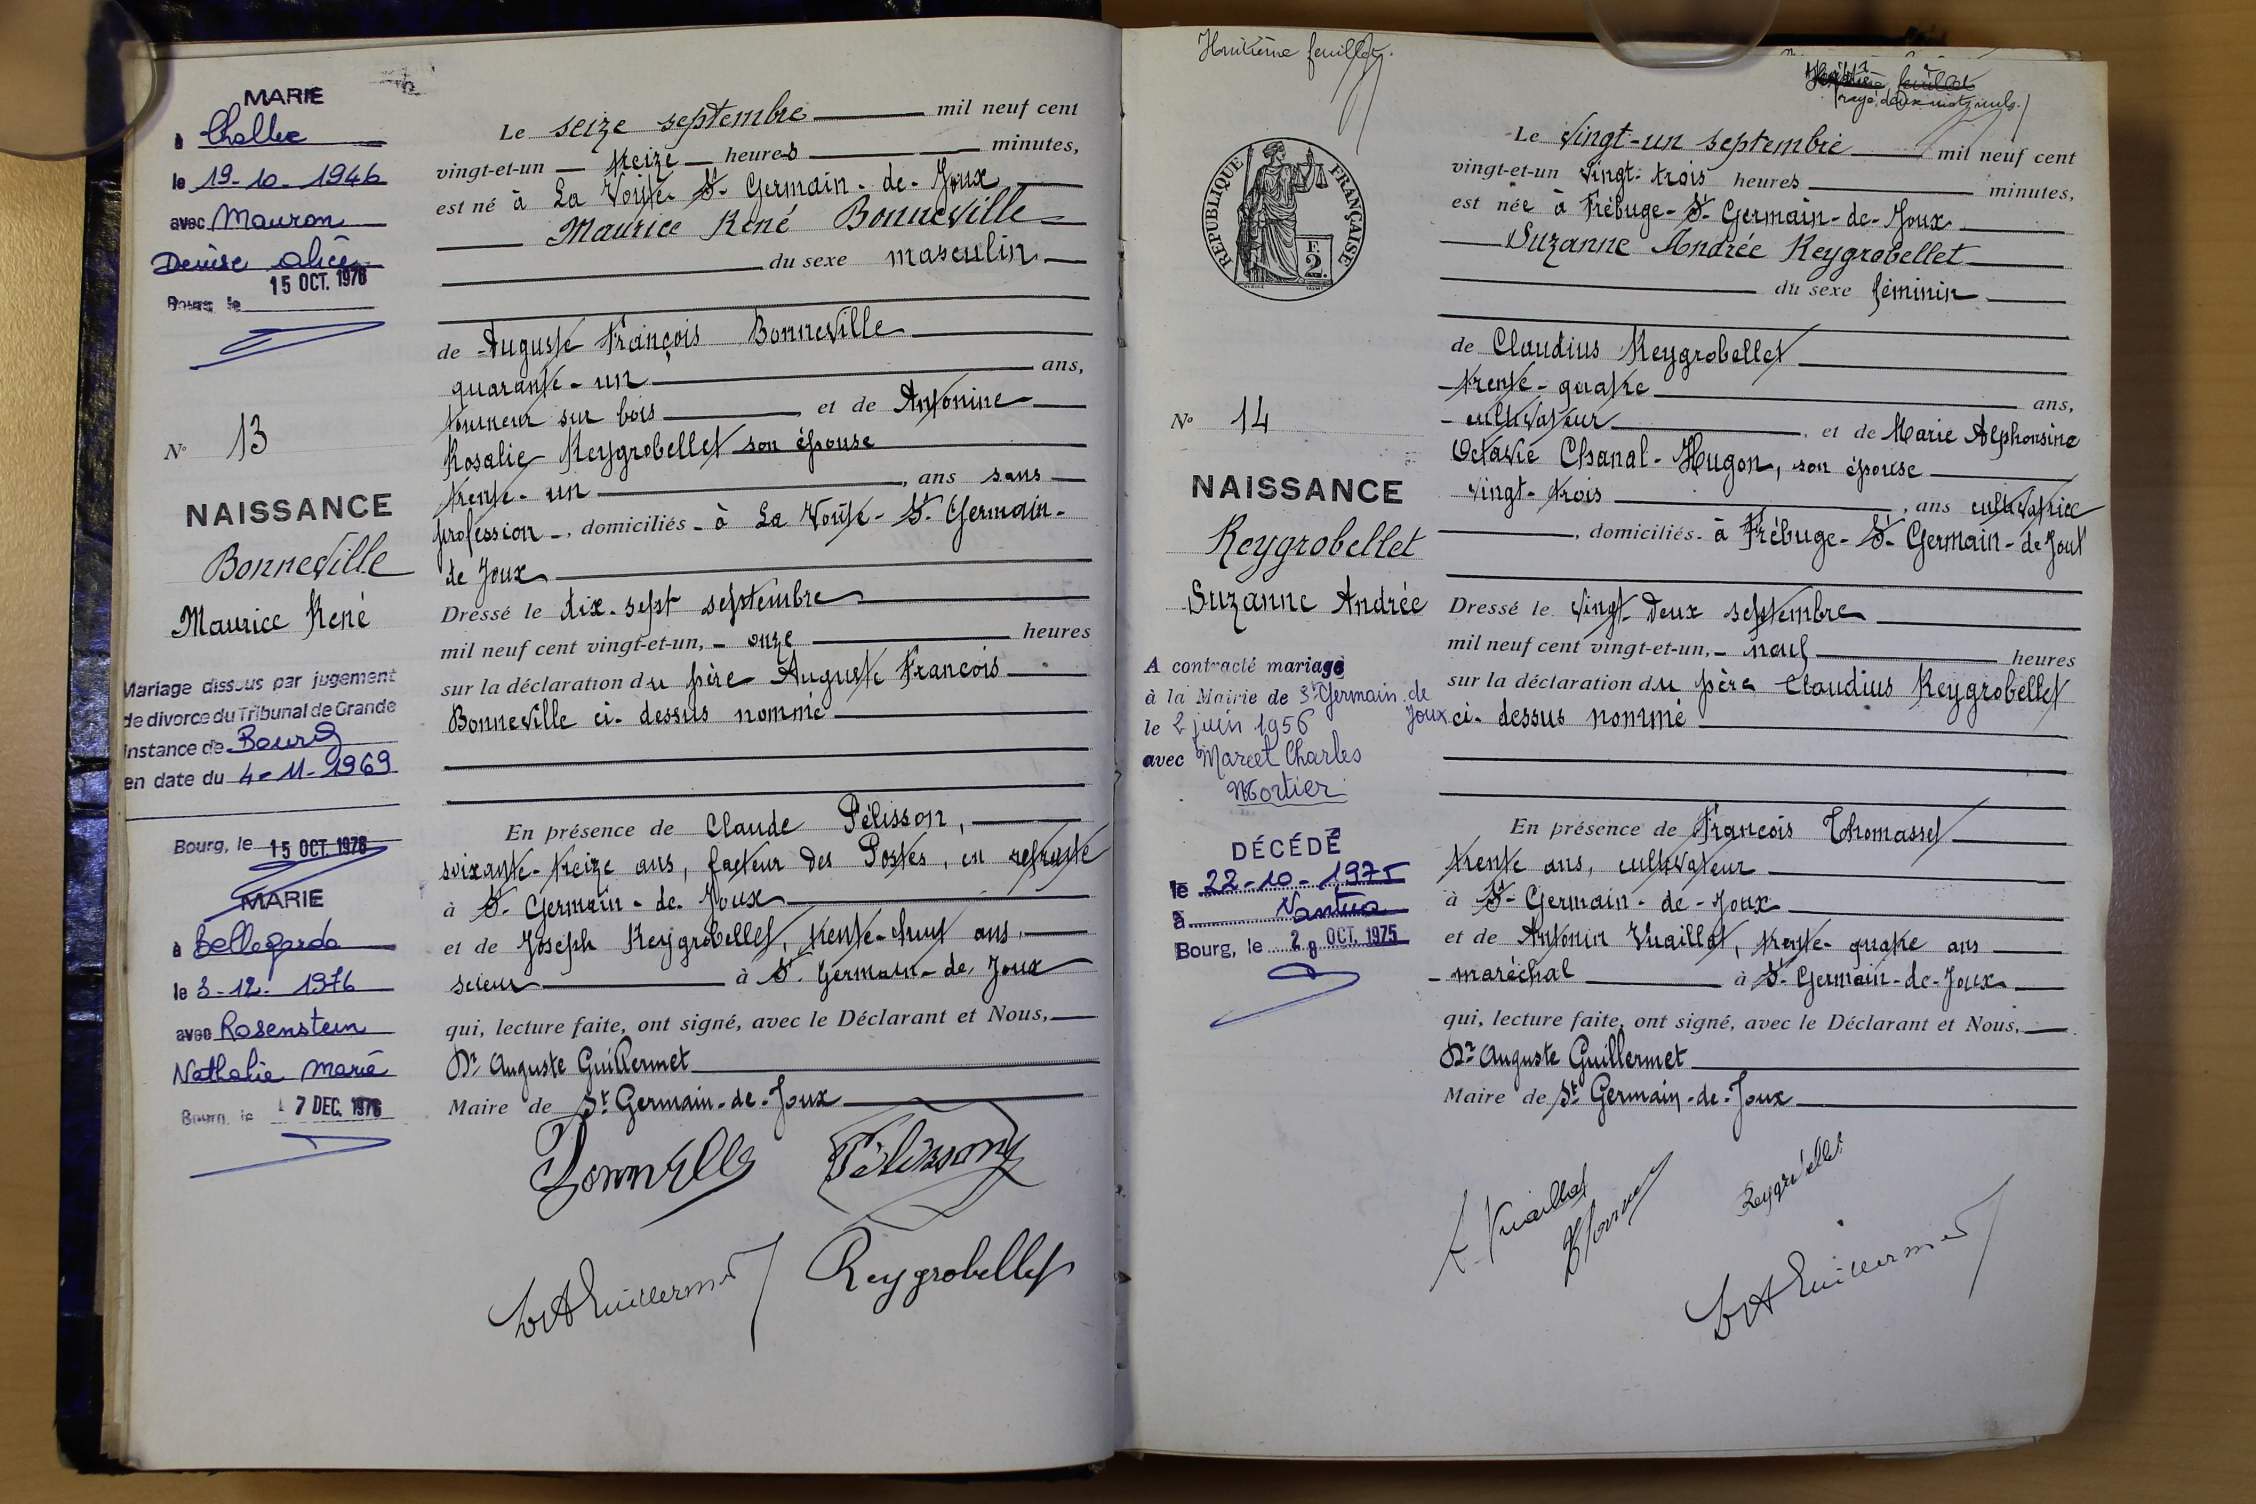 MARIE
à Challex
le 19-10-1946
avec Mauron
Denise Alice
15 OCT. 1976
Bourg, le
N° 13
NAISSANCE
Bonneville
Maurice René
Mariage dissous par jugement
de divorce du Tribunal de Grande
Instance de Bourg
en date du 4-11-1969
Bourg, le 15 OCT. 1976
MARIE
à Bellegarde
le 3-12-1976
avec Rosenstein
Nathalie Marie
Bourg, le 7 DEC. 1976
Le seize septembre mil neuf cent
vingt-et-un treize heures minutes,
est né à La Voute-St-Germain-de-Joux
Maurice René Bonneville
du sexe masculin
de Auguste François Bonneville
quarante-un ans,
tourneur sur bois, et de Antonine
Rosalie Reygrobellet son épouse
trente-un, ans sans
profession, domiciliés à La Voute-St-Germain-
de Joux
Dressé le dix-sept septembre
mil neuf cent vingt-et-un, onze heures
sur la déclaration du père Auguste François
Bonneville ci-dessus nommé
En présence de Claude Pélisson,
soixante-treize ans, facteur des Postes, en retraite
à St-Germain-de-Joux
et de Joseph Reygrobellet, trente-huit ans,
scieur à St-Germain-de-Joux
qui, lecture faite, ont signé, avec le Déclarant et Nous,
Dr Auguste Guillermet
Maire de St Germain-de-Joux
Bonneville Pélisson
Dr A Guillermet Reygrobellet
Huitième feuillet.
Huitième feuillet
(rayé deux mots nuls.)
REPUBLIQUE FRANÇAISE
F.
2.
N° 14
NAISSANCE
Reygrobellet
Suzanne Andrée
A contracté mariage
à la Mairie de St Germain de
Joux
le 2 juin 1956
avec Marcel Charles
Mortier
DÉCÉDÉ
le 22-10-1975
à Nantua
Bourg, le 28 OCT. 1975
Le vingt-un septembre mil neuf cent
vingt-et-un vingt-trois heures minutes,
est née à Trébuge-St-Germain-de-Joux
Suzanne Andrée Reygrobellet
du sexe féminin
de Claudius Reygrobellet
trente-quatre ans,
cultivateur, et de Marie Alphonsine
Octavie Chanal-Hugon, son épouse
vingt-trois, ans cultivatrice
, domiciliés à Trébuge-St-Germain-de Joux
Dressé le vingt-deux septembre
mil neuf cent vingt-et-un, neuf heures
sur la déclaration du père Claudius Reygrobellet
ci-dessus nommé
En présence de François Thomasset
trente ans, cultivateur
à St-Germain-de-Joux
et de Antonin Vuaillat, trente-quatre ans
maréchal à St-Germain-de-Joux
qui, lecture faite, ont signé, avec le Déclarant et Nous,
Dr Auguste Guillermet
Maire de St Germain-de-Joux
A. Vuaillat Reygrobellet
Dr A Guillermet